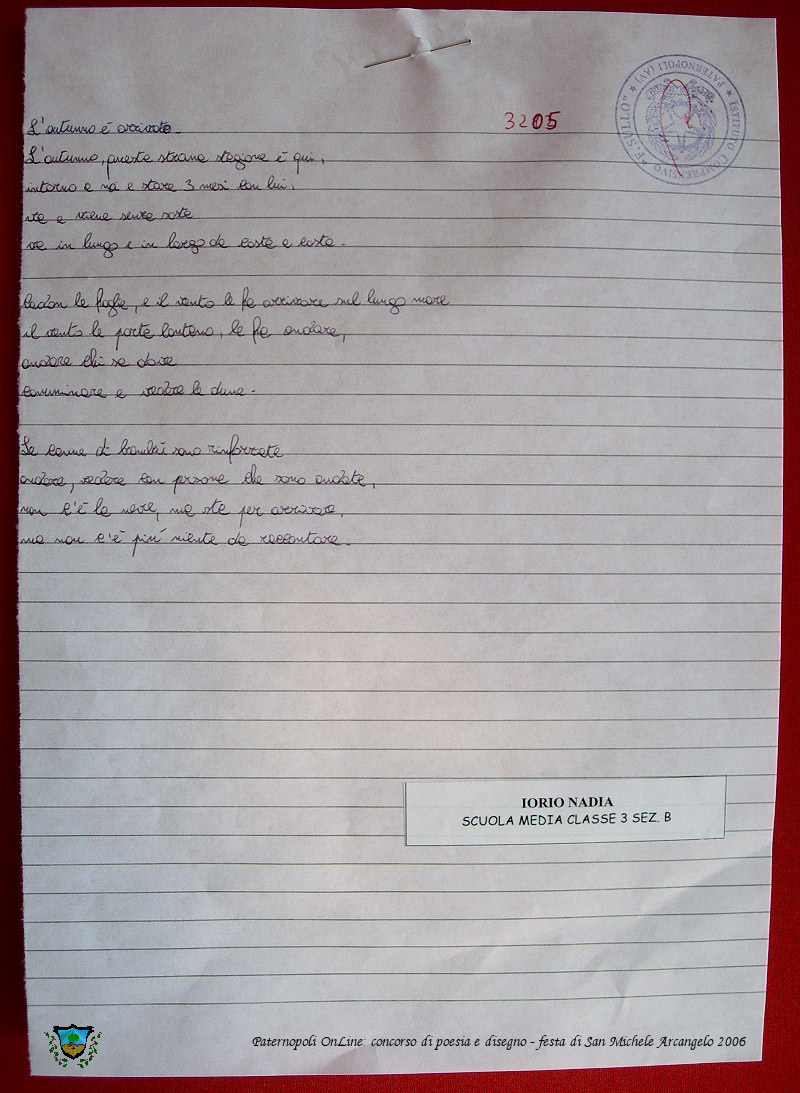 L'autunno è arrivato.
3205
ISTITUTO COMPRENSIVO "F. SULLO" * PATERNOPOLI (AV) *
L'autunno, questa strana stagione è qui,
intorno a noi e stare 3 mesi con lui,
va e viene senza sosta
va in lungo e in largo da costa a costa.
Cadon le foglie, e il vento le fa arrivare sul lungo mare
il vento le porta lontano, le fa andare,
andare chi sa dove
camminare e vedere le dune.
Le canne di bambù sono rinforzate
andare, vedere con persone che sono andate,
non c'è la neve, ma sta per arrivare,
ma non c'è più niente da raccontare.
IORIO NADIA
SCUOLA MEDIA CLASSE 3 SEZ. B
Paternopoli OnLine: concorso di poesia e disegno - festa di San Michele Arcangelo 2006